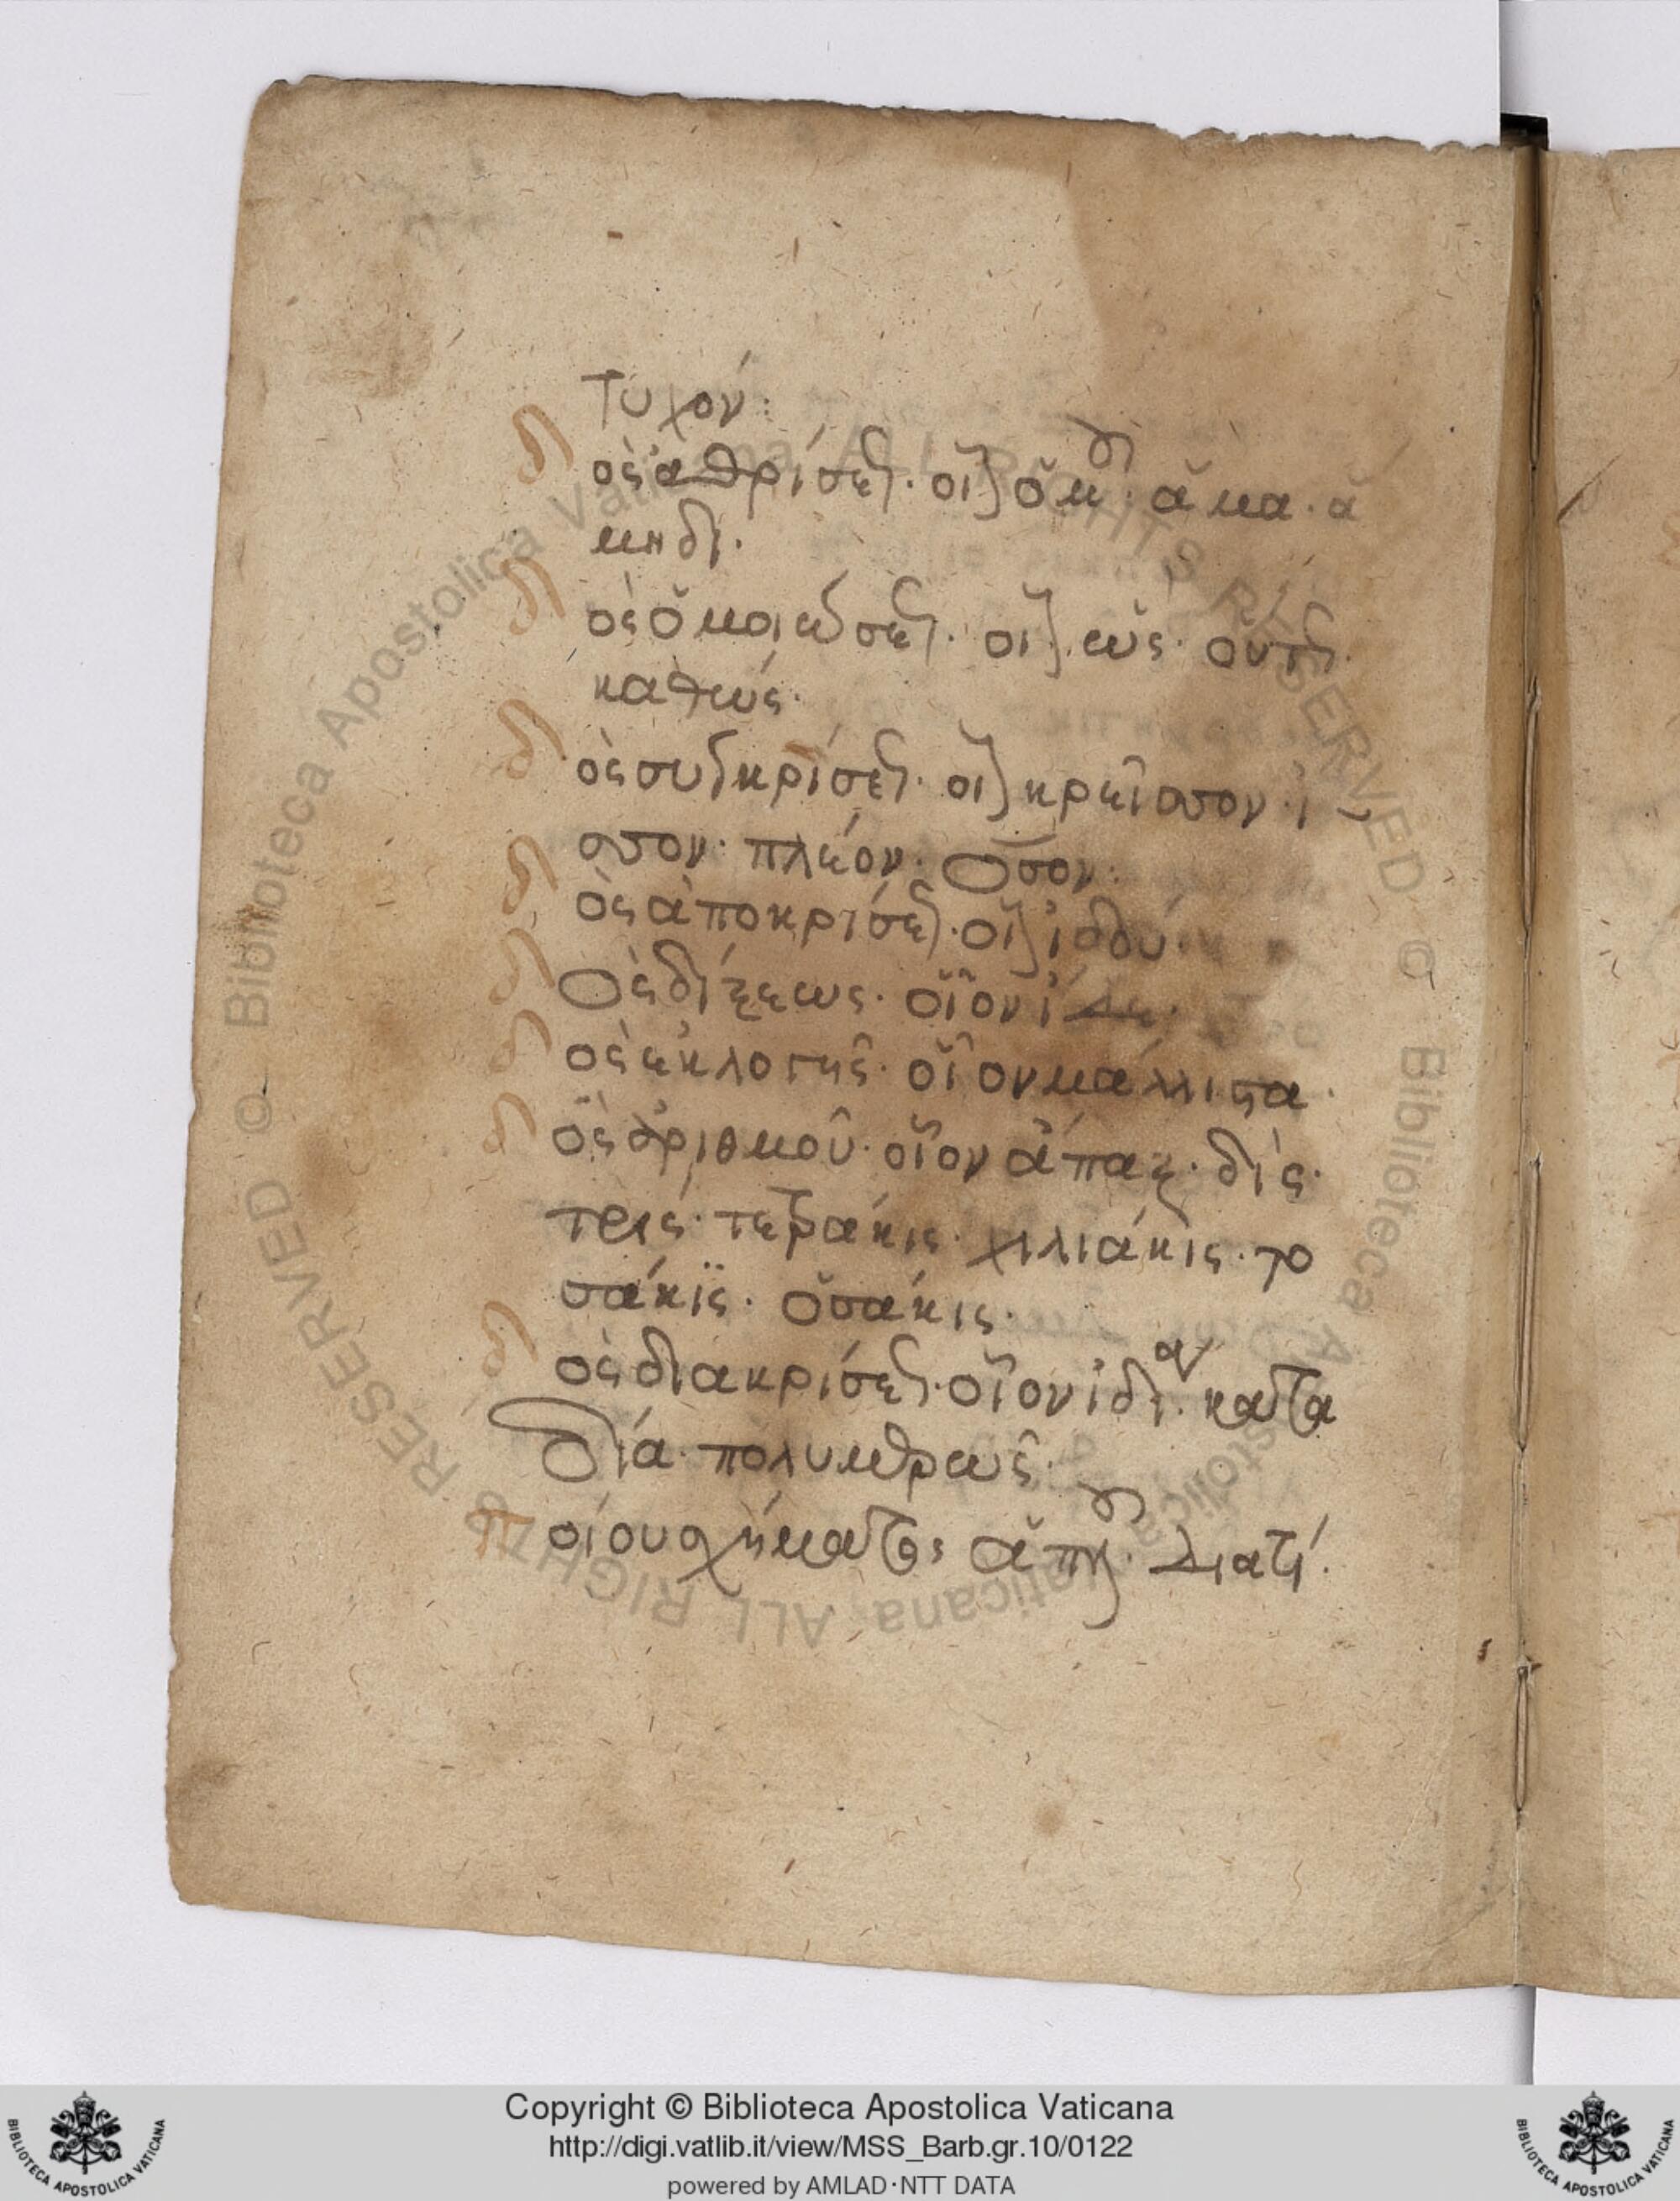 τυχόν:
ὁς ἀθρίσεως· οἷον ὁμοῦ· ἅμα· ἅ
μηδι·
ὁς ὁμοιώσεως· οἷον ὡς· οὕτως
καθώς·
ὁς συγκρίσεως· οἷον κρεῖσσον· ἥ
σσον· πλέον· ὅσον:
ὁς ἀποκρίσεως· οἷον ἰδού·
ὁς δίξεως· οἷον ἴδε·
ὁς ἐκλογῆς· οἷον μάλλιστα·
ὁς ἀριθμοῦ· οἷον ἅπαξ· δίς·
τρις· τετράκις· χιλιάκις· το
σάκις· ὁσάκις·
ὁς διακρίσεως· οἷον ἰδίαν· κατα
δία· πολυμερῶς·
Διατί·
Copyright © Biblioteca Apostolica Vaticana
http://digi.vatlib.it/view/MSS_Barb.gr.10/0122
powered by AMLAD·NTT DATA
BIBLIOTECA APOSTOLICA VATICANA
BIBLIOTECA APOSTOLICA VATICANA